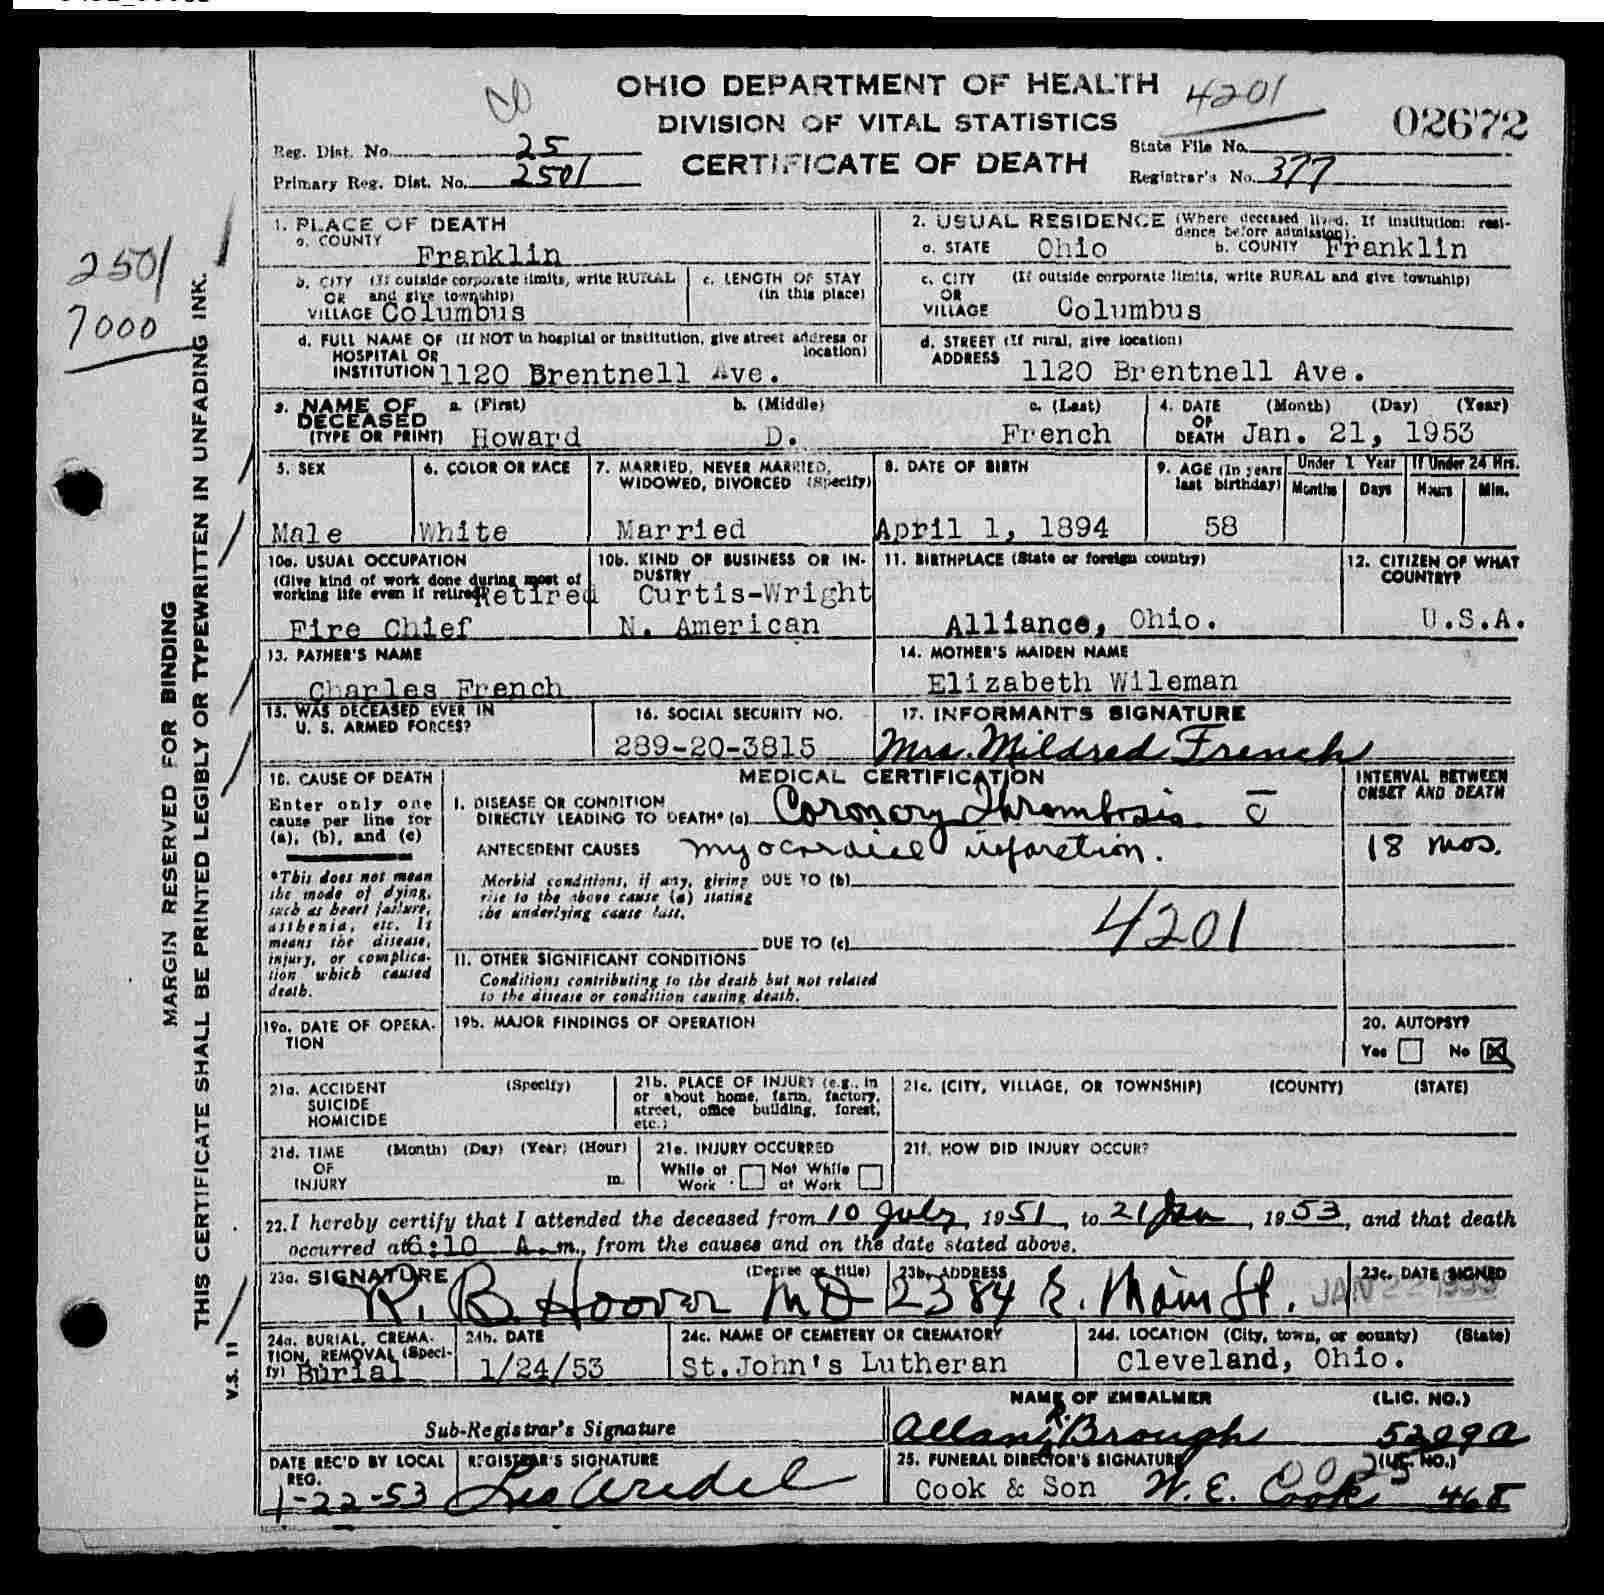 OHIO DEPARTMENT OF HEALTH
DIVISION OF VITAL STATISTICS
CERTIFICATE OF DEATH
4201
02672
Reg. Dist. No. 25
Primary Reg. Dist. No. 2501
State File No.
Registrar's No. 377
2501
7000
MARGIN RESERVED FOR BINDING
THIS CERTIFICATE SHALL BE PRINTED LEGIBLY OR TYPEWRITTEN IN UNFADING INK.
V.S. 11
1. PLACE OF DEATH
a. COUNTY Franklin
b. CITY (If outside corporate limits, write RURAL
OR and give township)
VILLAGE Columbus
c. LENGTH OF STAY
(in this place)
d. FULL NAME OF (If NOT in hospital or institution, give street address or
HOSPITAL OR location)
INSTITUTION 1120 Brentnell Ave.
2. USUAL RESIDENCE (Where deceased lived. If institution: resi-
dence before admission).
a. STATE Ohio b. COUNTY Franklin
c. CITY (If outside corporate limits, write RURAL and give township)
OR
VILLAGE Columbus
d. STREET (If rural, give location)
ADDRESS 1120 Brentnell Ave.
3. NAME OF a. (First) b. (Middle) c. (Last)
DECEASED
(TYPE OR PRINT) Howard D. French
4. DATE (Month) (Day) (Year)
OF
DEATH Jan. 21, 1953
5. SEX
Male
6. COLOR OR RACE
White
7. MARRIED, NEVER MARRIED,
WIDOWED, DIVORCED (Specify)
Married
8. DATE OF BIRTH
April 1, 1894
9. AGE (In years
last birthday)
58
Under 1 Year
Months Days
If Under 24 Hrs.
Hours Min.
10a. USUAL OCCUPATION
(Give kind of work done during most of
working life even if retired) Retired
Fire Chief
10b. KIND OF BUSINESS OR IN-
DUSTRY
Curtis-Wright
N. American
11. BIRTHPLACE (State or foreign country)
Alliance, Ohio.
12. CITIZEN OF WHAT
COUNTRY?
U.S.A.
13. FATHER'S NAME
Charles French
14. MOTHER'S MAIDEN NAME
Elizabeth Wileman
15. WAS DECEASED EVER IN
U. S. ARMED FORCES?
16. SOCIAL SECURITY NO.
289-20-3815
17. INFORMANT'S SIGNATURE
Mrs. Mildred French
18. CAUSE OF DEATH
Enter only one
cause per line for
(a), (b), and (c)
*This does not mean
the mode of dying,
such as heart failure,
asthenia, etc. It
means the disease,
injury, or complica-
tion which caused
death.
MEDICAL CERTIFICATION
I. DISEASE OR CONDITION
DIRECTLY LEADING TO DEATH* (a) Coronary Thrombosis c̄
ANTECEDENT CAUSES myocardial infarction.
Morbid conditions, if any, giving DUE TO (b)
rise to the above cause (a) stating
the underlying cause last.
4201
DUE TO (c)
II. OTHER SIGNIFICANT CONDITIONS
Conditions contributing to the death but not related
to the disease or condition causing death.
INTERVAL BETWEEN
ONSET AND DEATH
18 mos.
19a. DATE OF OPERA-
TION
19b. MAJOR FINDINGS OF OPERATION
20. AUTOPSY?
Yes No
21a. ACCIDENT (Specify)
SUICIDE
HOMICIDE
21b. PLACE OF INJURY (e.g., in
or about home, farm, factory,
street, office building, forest,
etc.)
21c. (CITY, VILLAGE, OR TOWNSHIP) (COUNTY) (STATE)
21d. TIME (Month) (Day) (Year) (Hour)
OF
INJURY m.
21e. INJURY OCCURRED
While at Not While
Work at Work
21f. HOW DID INJURY OCCUR?
22. I hereby certify that I attended the deceased from 10 July, 1951, to 21 Jan, 1953, and that death
occurred at 6:10 A.m., from the causes and on the date stated above.
23a. SIGNATURE (Degree or title)
R. B. Hoover MD
23b. ADDRESS
2384 E. Main St.
23c. DATE SIGNED
JAN 22 1953
24a. BURIAL, CREMA-
TION, REMOVAL (Speci-
fy) Burial
24b. DATE
1/24/53
24c. NAME OF CEMETERY OR CREMATORY
St.John's Lutheran
24d. LOCATION (City, town, or county) (State)
Cleveland, Ohio.
Sub-Registrar's Signature
NAME OF EMBALMER (LIC. NO.)
Allan R. Brough 5209A
DATE REC'D BY LOCAL
REG.
1-22-53
REGISTRAR'S SIGNATURE
25. FUNERAL DIRECTOR'S SIGNATURE (LIC. NO.)
Cook & Son W. E. Cook 468